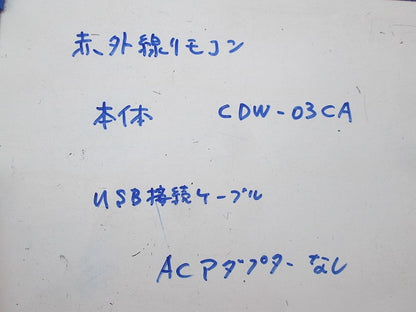 赤外線リモコン
本体 CDW-03CA
USB接続ケーブル
ACアダプターなし